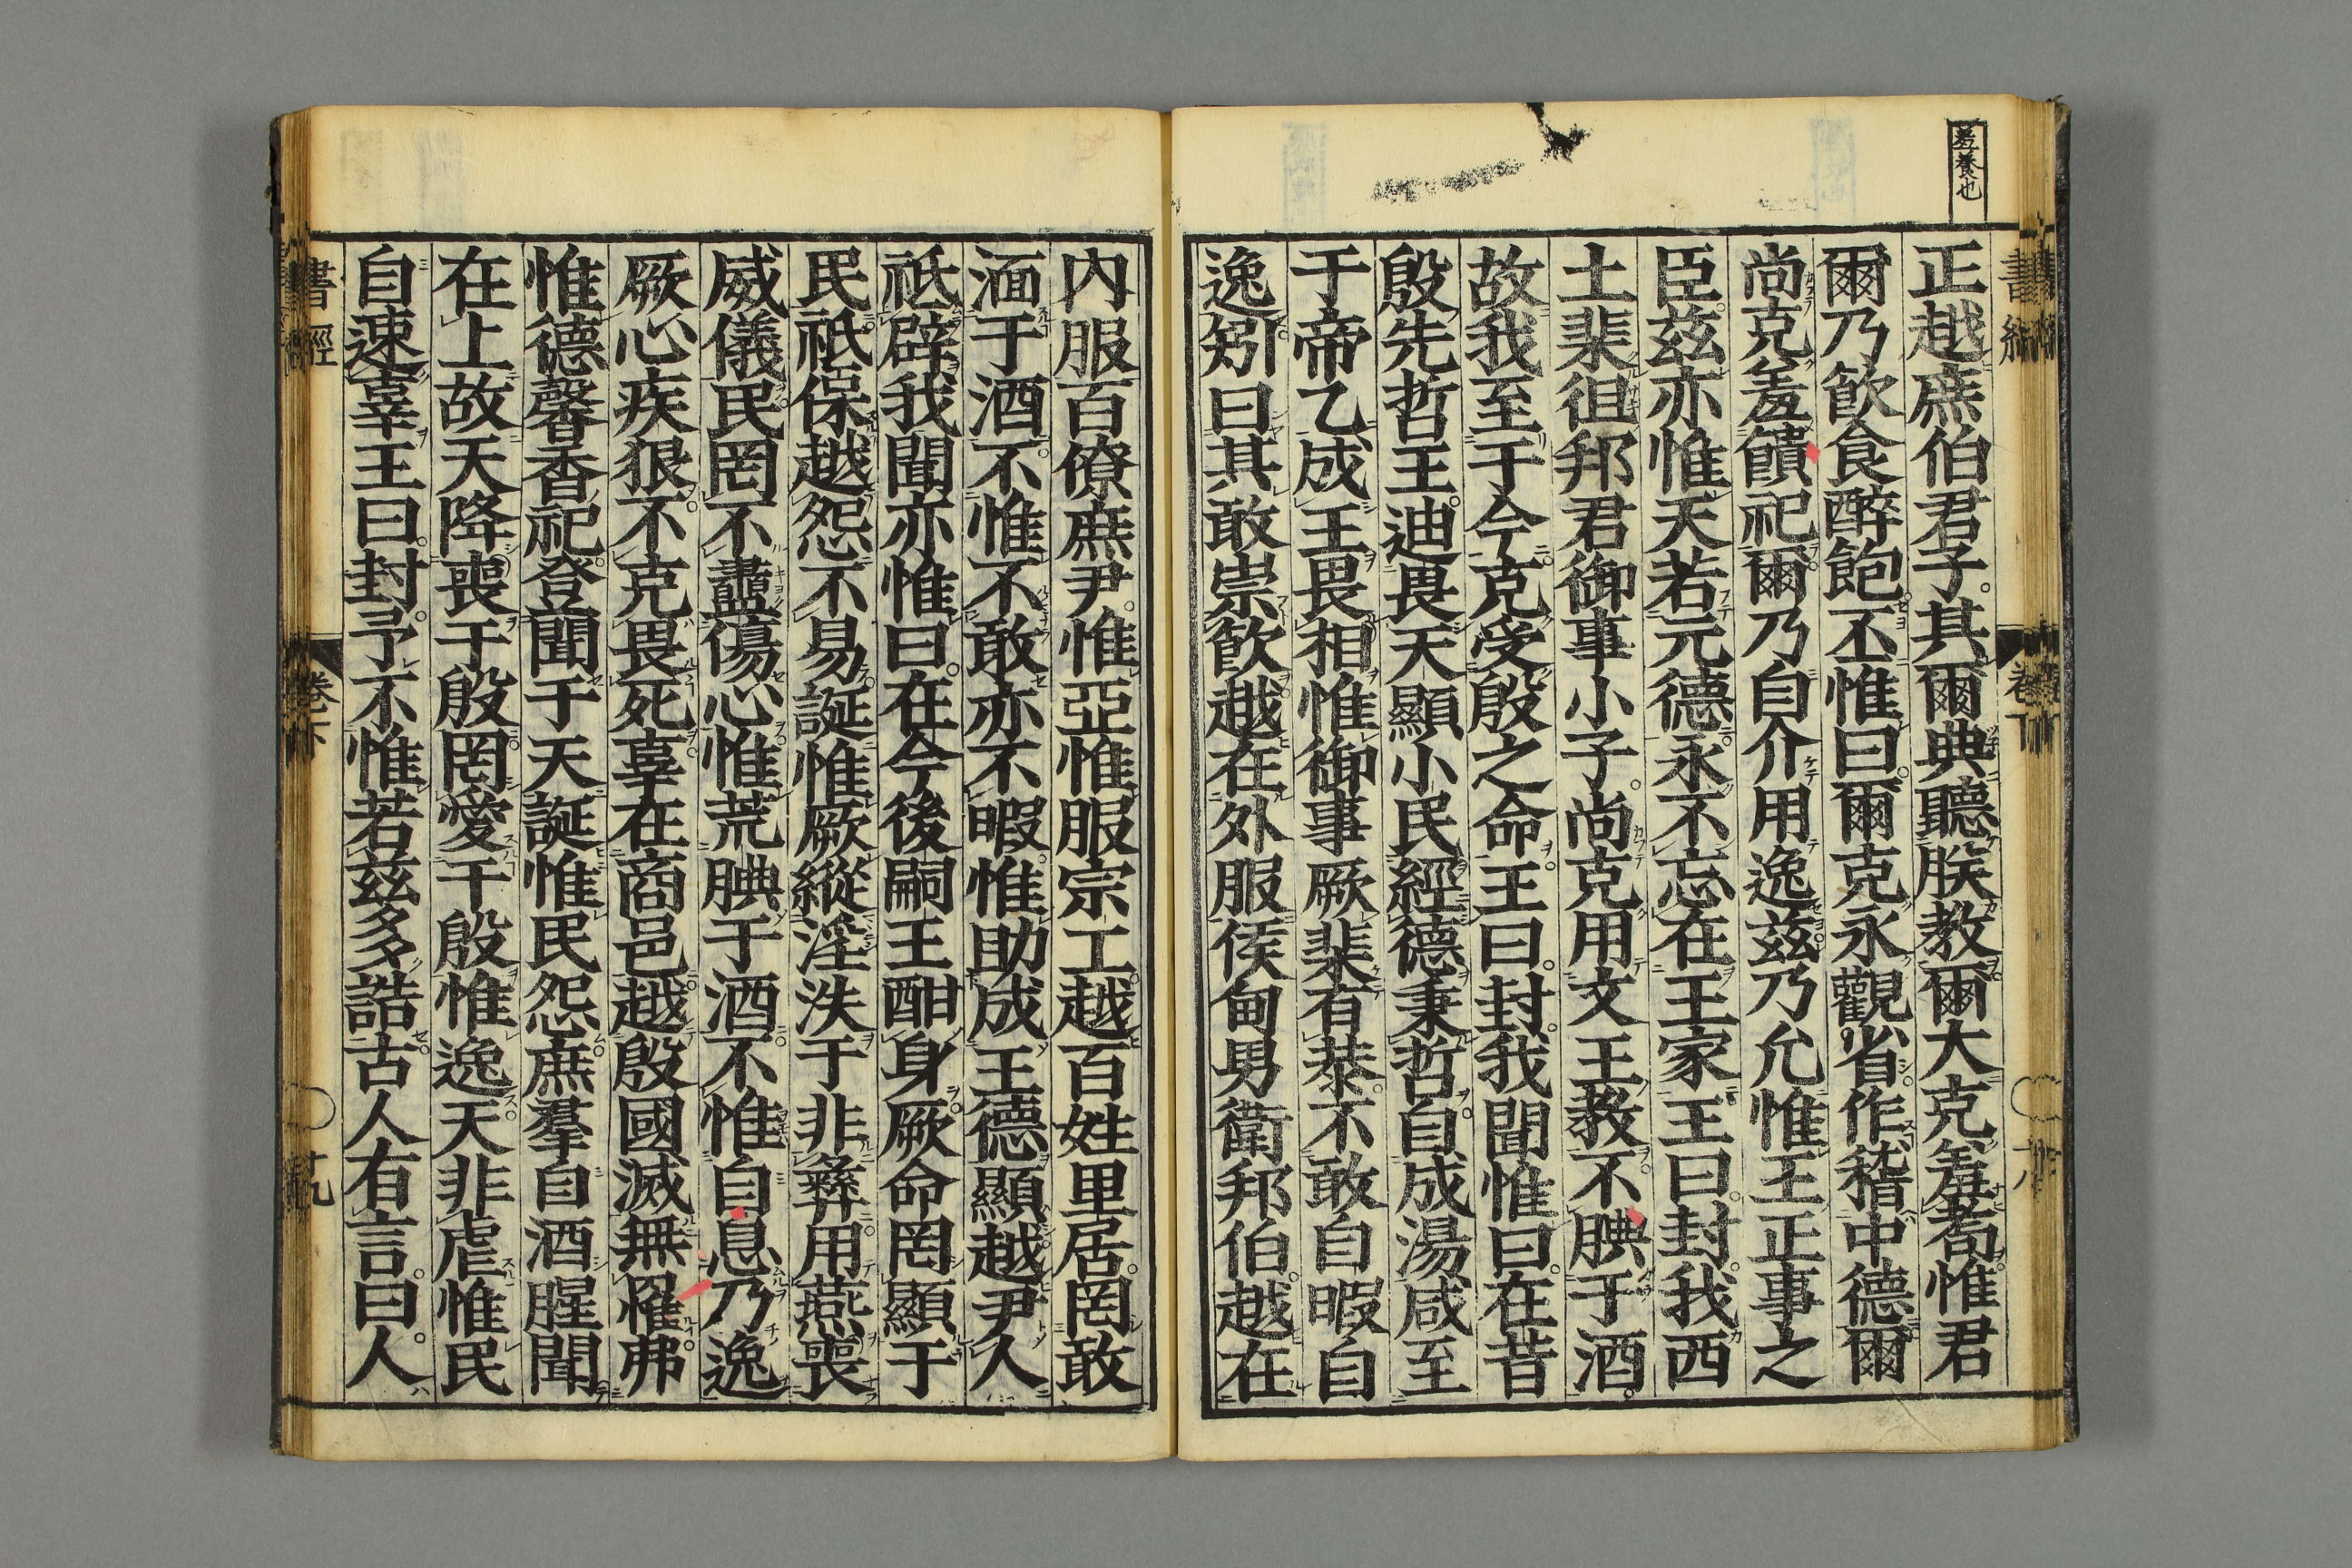 羞養也
正越庶伯君子其爾典聽朕教爾大克羞耇惟君
爾乃飲食醉飽丕惟曰爾克永觀省作稽中德爾
尚克羞饋祀爾乃自介用逸茲乃允惟王正事之
臣茲亦惟天若元德永不忘在王家王曰封我西
土棐徂邦君御事小子尚克用文王教不腆于酒
故我至于今克受殷之命王曰封我聞惟曰在昔
殷先哲王迪畏天顯小民經德秉哲自成湯咸至
于帝乙成王畏相惟御事厥棐有恭不敢自暇自
逸矧曰其敢崇飲越在外服侯甸男衛邦伯越在
內服百僚庶尹惟亞惟服宗工越百姓里居罔敢
湎于酒不惟不敢亦不暇惟助成王德顯越尹人
祗辟我聞亦惟曰在今後嗣王酣身厥命罔顯于
民祗保越怨不易誕惟厥縱淫泆于非彝用燕喪
威儀民罔不衋傷心惟荒腆于酒不惟自息乃逸
厥心疾狠不克畏死辜在商邑越殷國滅無罹弗
惟德馨香祀登聞于天誕惟民怨庶羣自酒腥聞
在上故天降喪于殷罔愛于殷惟逸天非虐惟民
自速辜王曰封予不惟若茲多誥古人有言曰人
書經 卷下 十九